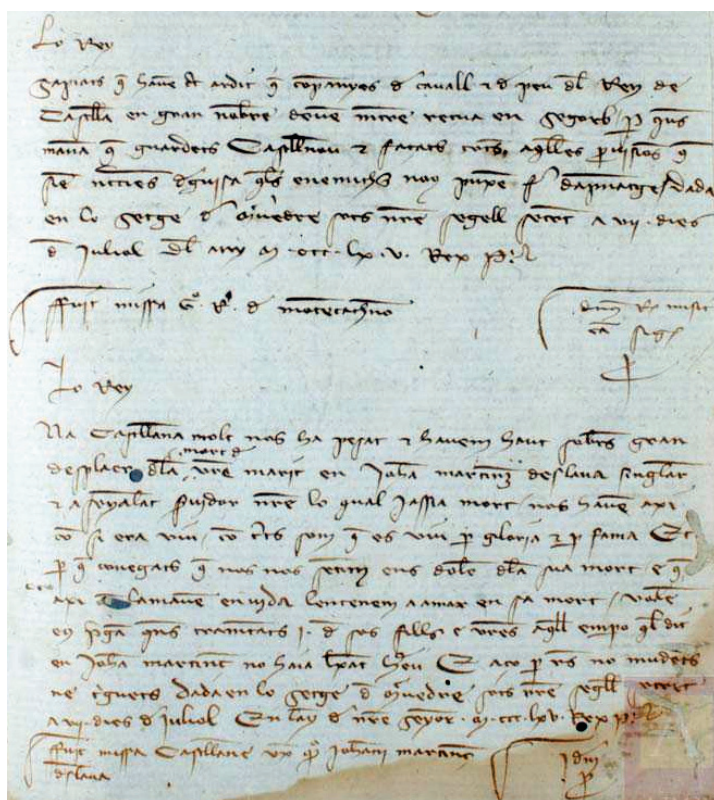 Lo Rey
Sapiats q havē cert ardit q cōpanyes d cavall e d peu dl Rey de
Castella en gran nōbre deuē metre recua en Segorb p q us
manā q guardets Castellnou e façats totes aqlles pvisiōs q
sien ncc̄ries d guisa qls enemichs noy puxē fer dapnatge dada
en lo setge d Muruedre sots nr̄e segell secret a vii dies
d Juliol dl any M ccc lx v Rex P.
Fuit missa G. R. d
dn̄s Rex misit
Lo Rey
Na Castellana molt nos ha pesat e havem haut sobres gran
desplaer dla mort d vr̄e marit en Johā martinez deslava singlar
e a senyalat s̄vidor nr̄e lo qual jassia mort nos havē axi
cō si era viu cō certs som q es viu p gloria e p fama Et
p q conegats q nos nos sentim ens dolē dla sua mort e q
axi com lamavē en vida lentenem a amar en sa mort volē
eus pgā q us trametats I d sos fills e vr̄es aqll empo ql dit
en Johā martinez no haia lexat hereu E aço p res no mudets
ne tiguets dada en lo setge d Muruedre sots nr̄e segell secret
a vii dies d Juliol En lany d nr̄e senyor M ccc lxv Rex P.
Fuit missa Castellane ux̄ qo Johanis martinez
deslava
Idm
p